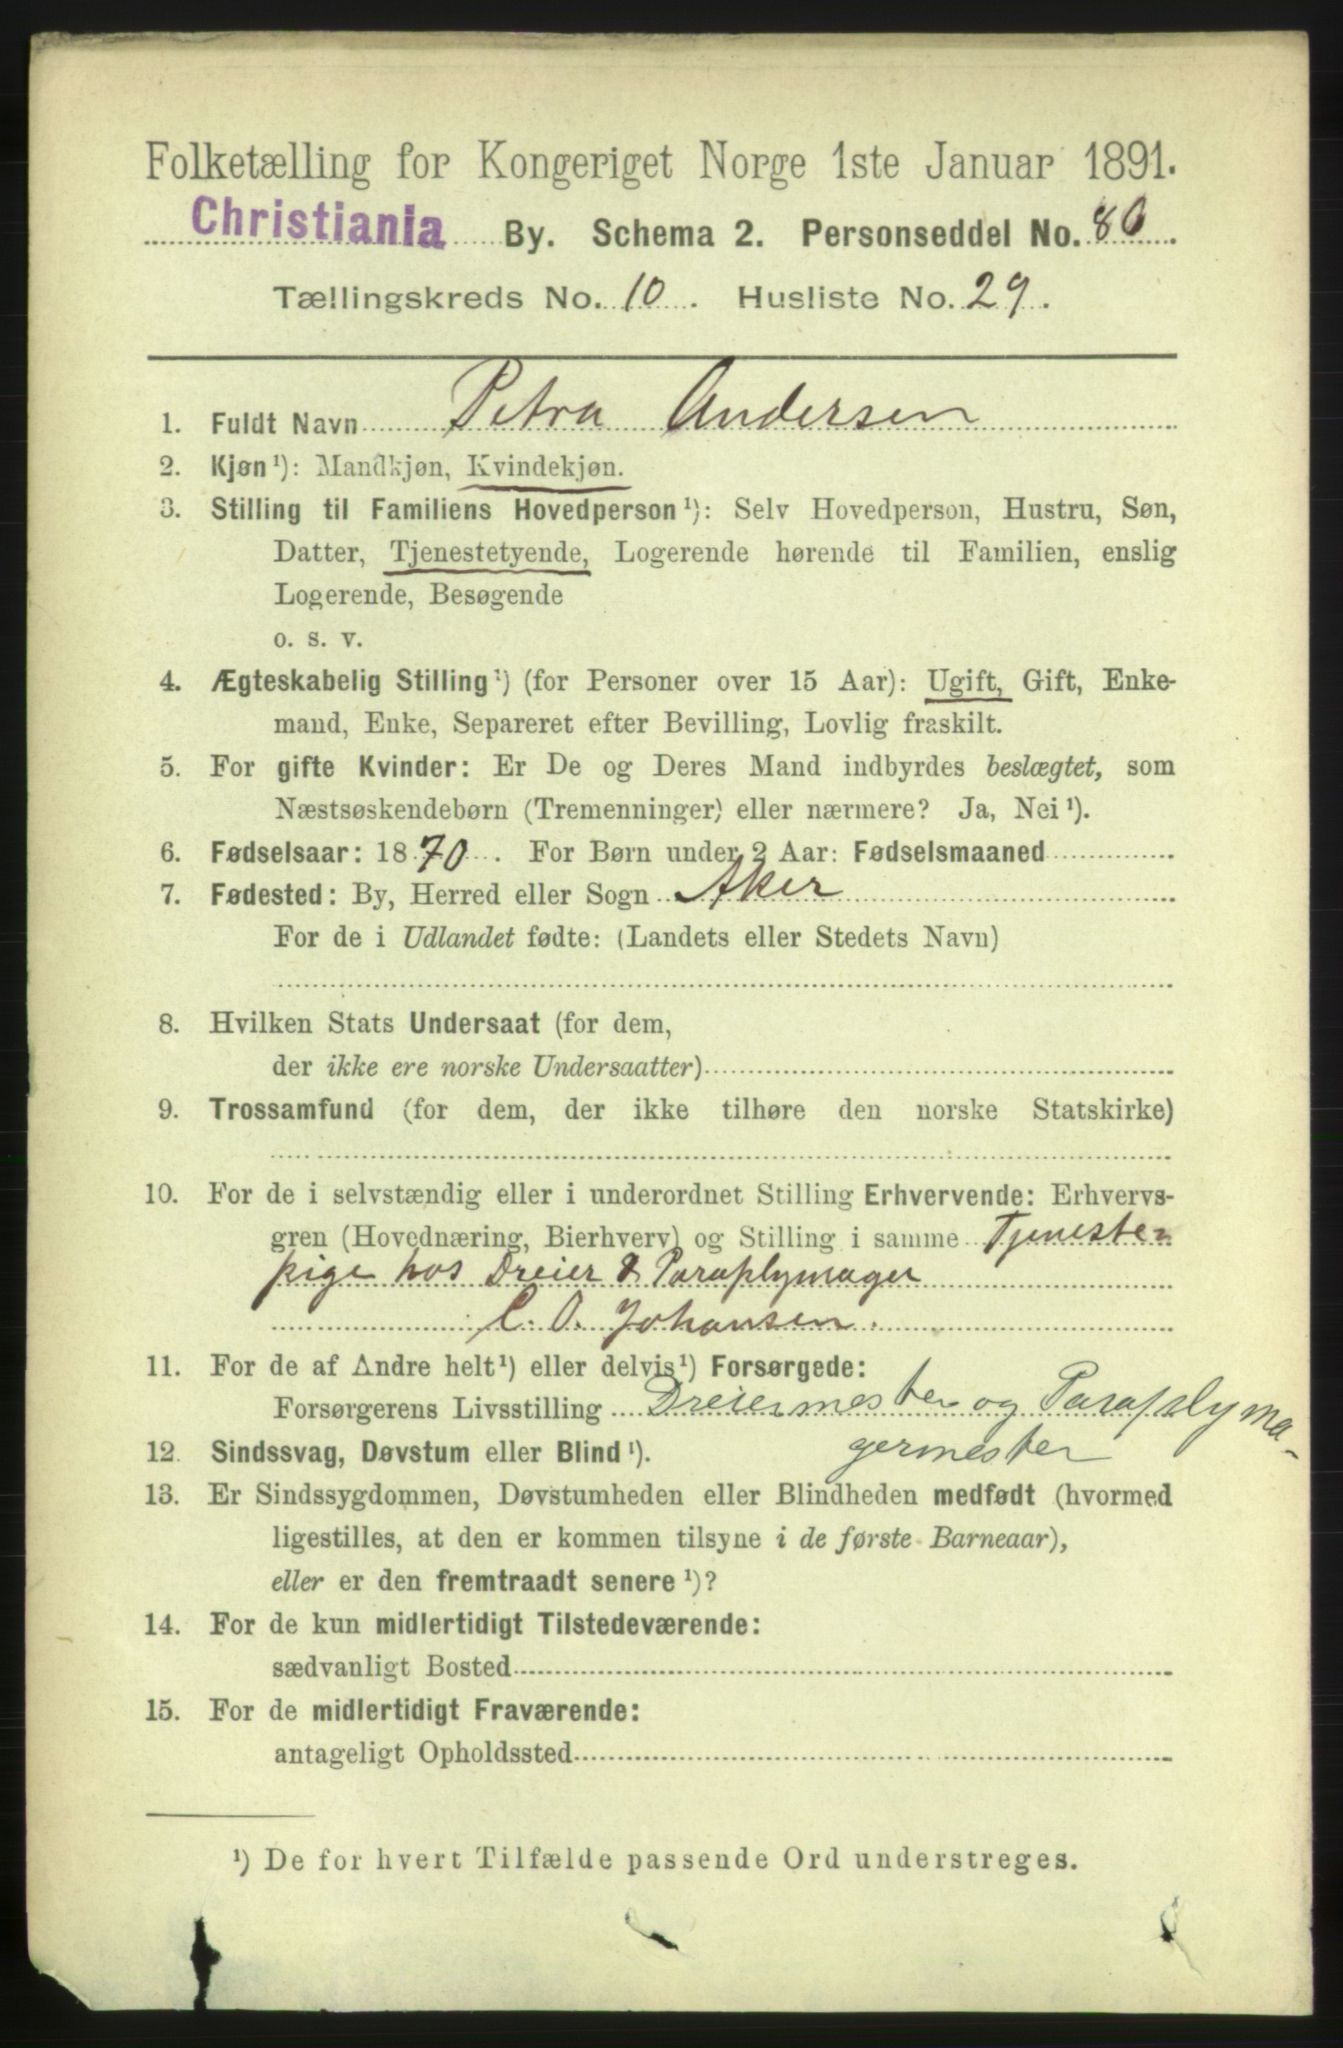 Folketælling for Kongeriget Norge 1ste Januar 1891.
Christiania By. Schema 2. Personseddel No. 80.
Tællingskreds No. 10. Husliste No. 29.
1. Fuldt Navn Petra Andersen
2. Kjøn¹): Mandkjøn, Kvindekjøn.
3. Stilling til Familiens Hovedperson¹): Selv Hovedperson, Hustru, Søn,
Datter, Tjenestetyende, Logerende hørende til Familien, enslig
Logerende, Besøgende
o. s. v.
4. Ægteskabelig Stilling¹) (for Personer over 15 Aar): Ugift, Gift, Enke-
mand, Enke, Separeret efter Bevilling, Lovlig fraskilt.
5. For gifte Kvinder: Er De og Deres Mand indbyrdes beslægtet, som
Næstsøskendebørn (Tremenninger) eller nærmere? Ja, Nei¹).
6. Fødselsaar: 1870. For Børn under 2 Aar: Fødselsmaaned
7. Fødested: By, Herred eller Sogn Aker
For de i Udlandet fødte: (Landets eller Stedets Navn)
8. Hvilken Stats Undersaat (for dem,
der ikke ere norske Undersaatter)
9. Trossamfund (for dem, der ikke tilhøre den norske Statskirke)
10. For de i selvstændig eller i underordnet Stilling Erhvervende: Erhvervs-
gren (Hovednæring, Bierhverv) og Stilling i samme Tjeneste-
pige hos Dreier & Paraplymager
C. O. Johansen.
11. For de af Andre helt¹) eller delvis¹) Forsørgede:
Forsørgerens Livsstilling Dreiermester og Paraplyma-
germester
12. Sindssvag, Døvstum eller Blind¹).
13. Er Sindssygdommen, Døvstumheden eller Blindheden medfødt (hvormed
ligestilles, at den er kommen tilsyne i de første Barneaar),
eller er den fremtraadt senere¹)?
14. For de kun midlertidigt Tilstedeværende:
sædvanligt Bosted
15. For de midlertidigt Fraværende:
antageligt Opholdssted
¹) De for hvert Tilfælde passende Ord understreges.